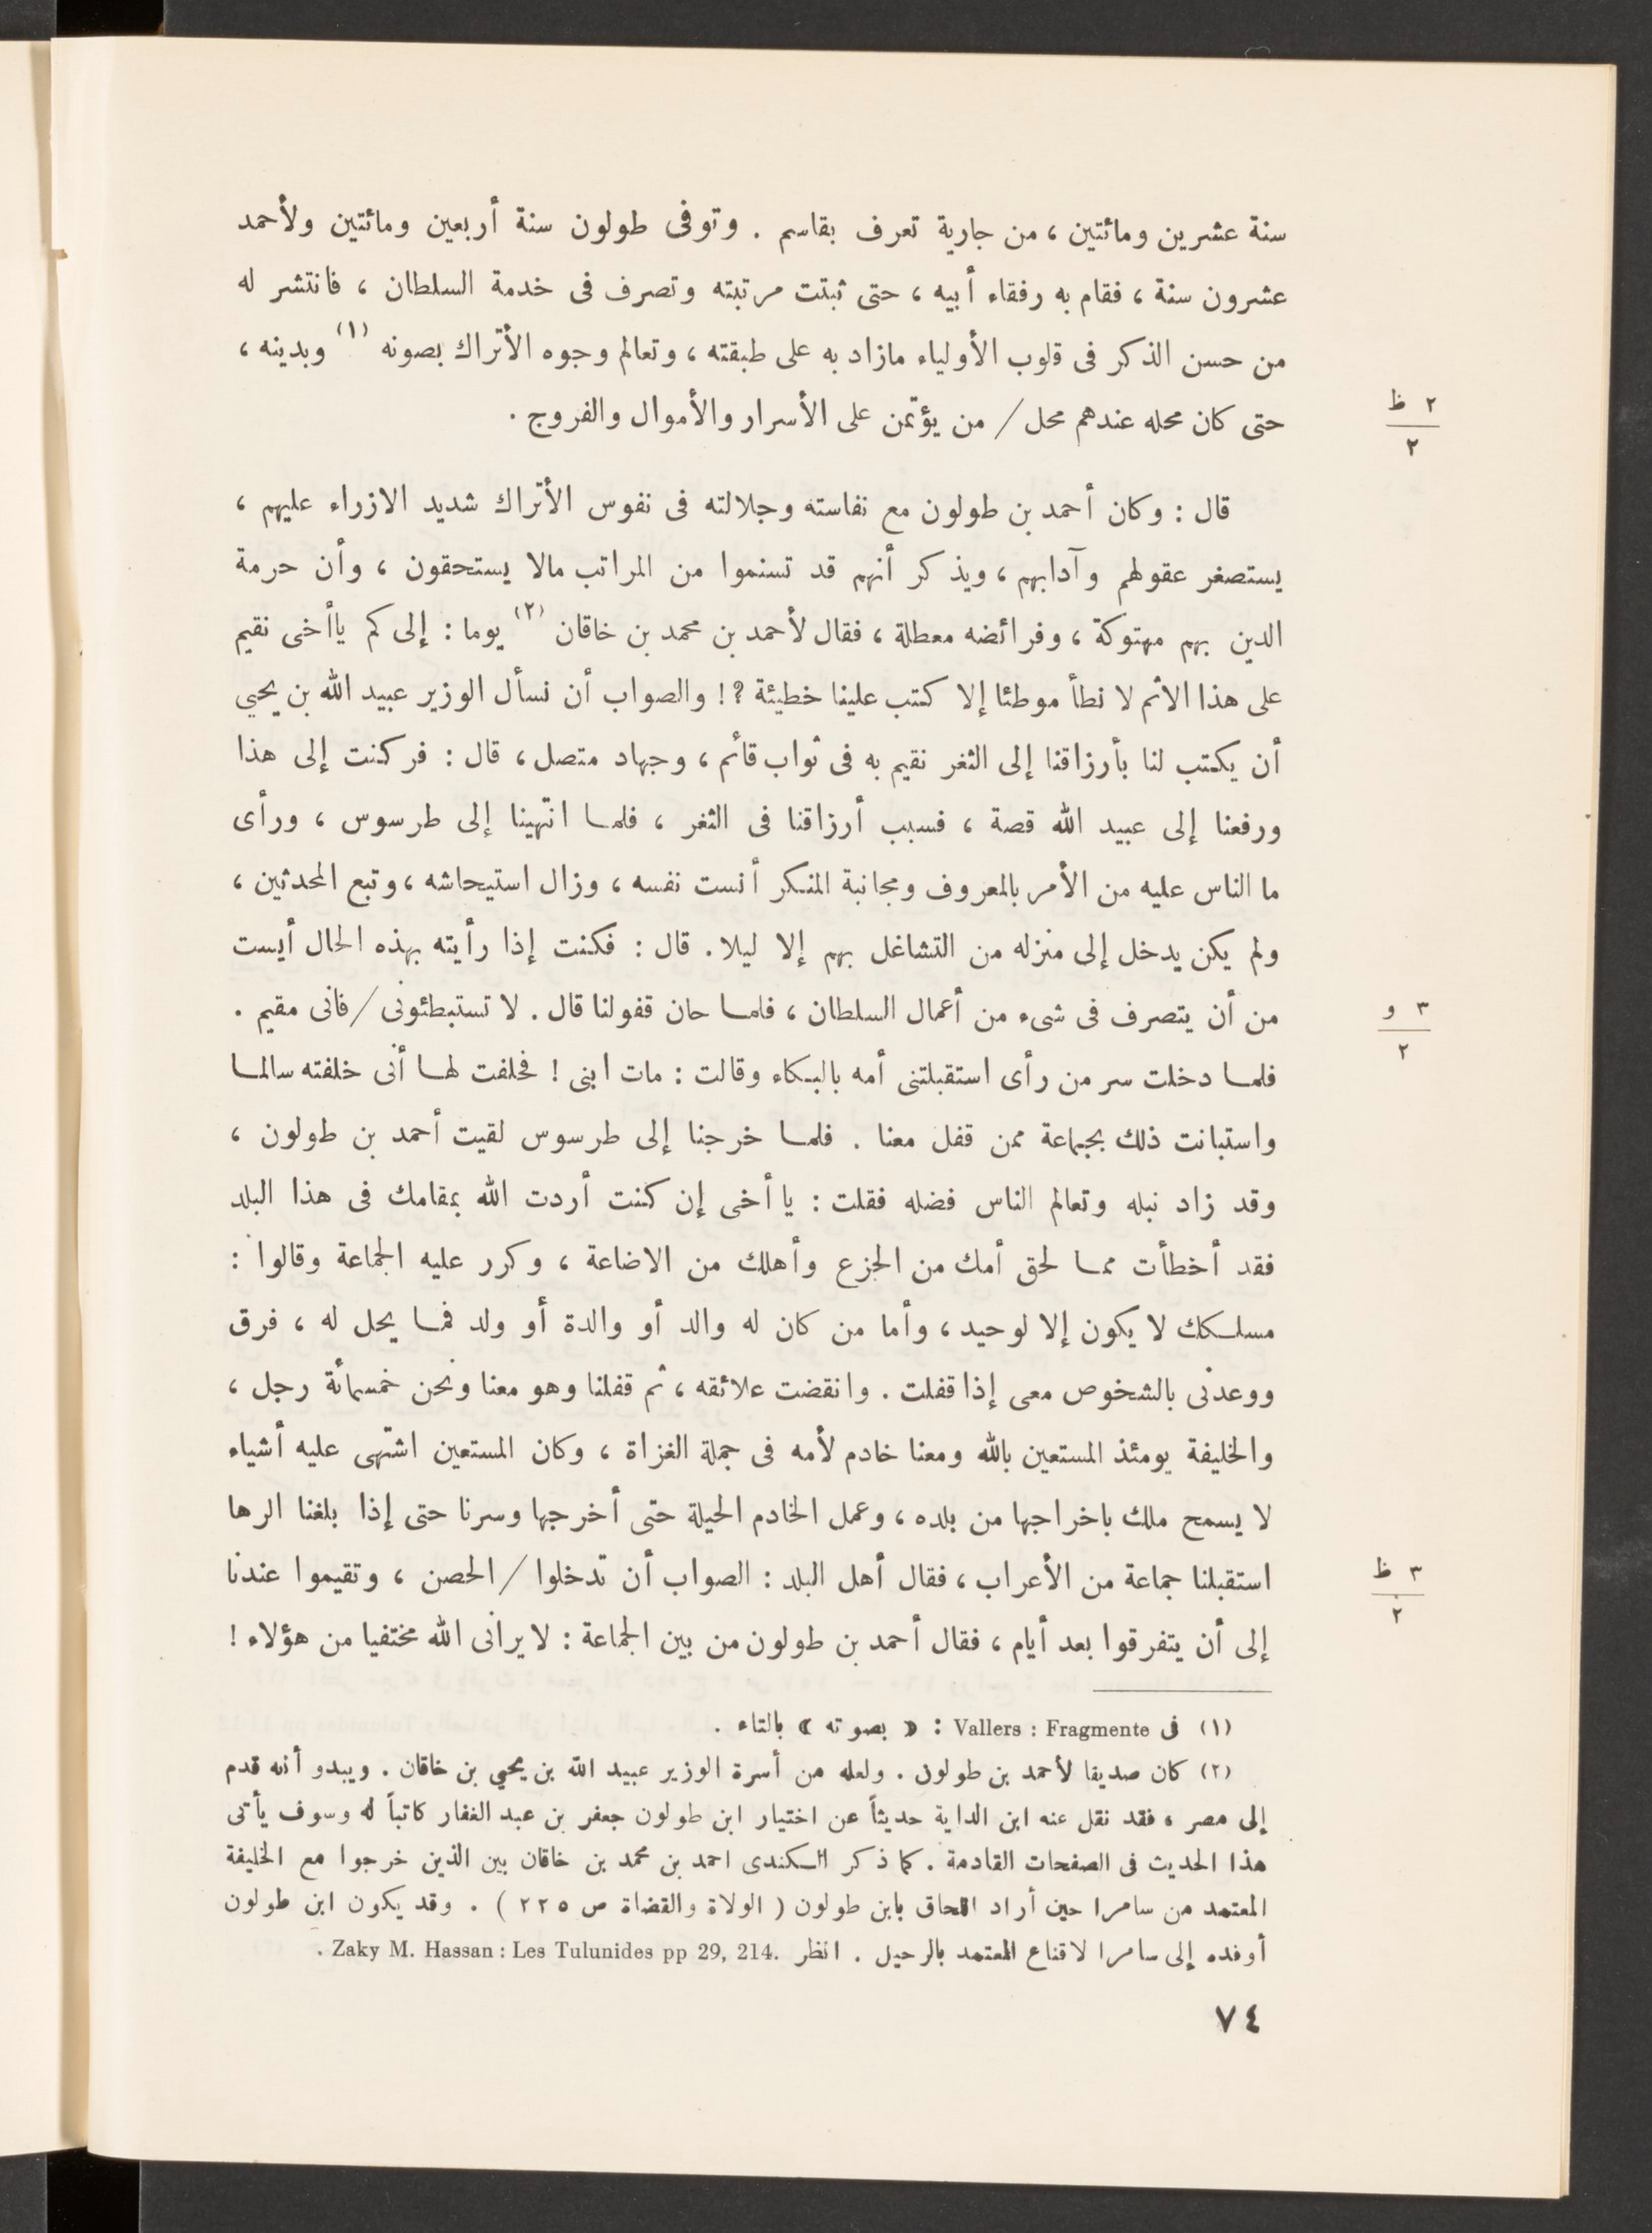 سنة عشرين ومائتين ، من جارية تعرف بقاسم . وتوفى طولون سنة أربعين ومائتين ولأحمد
عشرون سنة ، فقام به رفقاء أبيه ، حتى ثبتت مرتبته وتصرف فى خدمة السلطان ، فانتشر له
من حسن الذكر فى قلوب الأولياء مازاد به على طبقته ، وتعالم وجوه الأتراك بصونه (١) وبدينه ،
حتى كان محله عندهم محل / من يؤتمن على الأسرار والأموال والفروج .
٢ ظ
٢
قال : وكان أحمد بن طولون مع نفاسته وجلالته فى نفوس الأتراك شديد الازراء عليهم ،
يستصغر عقولهم وآدابهم ، ويذكر أنهم قد تسنموا من المراتب مالا يستحقون ، وأن حرمة
الدين بهم مهتوكة ، وفرائضه معطلة ، فقال لأحمد بن محمد بن خاقان (٢) يوما : إلى كم ياأخى نقيم
على هذا الاثم لا نطأ موطئا إلا كتب علينا خطيئة ?! والصواب أن نسأل الوزير عبيد الله بن يحيي
أن يكتب لنا بأرزاقنا إلى الثغر نقيم به فى ثواب قائم ، وجهاد متصل ، قال : فركنت إلى هذا
ورفعنا إلى عبيد الله قصة ، فسبب أرزاقنا فى الثغر ، فلما انتهينا إلى طرسوس ، ورأى
ما الناس عليه من الأمر بالمعروف ومجانبة المنكر أنست نفسه ، وزال استيحاشه ، وتبع المحدثين ،
ولم يكن يدخل إلى منزله من التشاغل بهم إلا ليلا . قال : فكنت إذا رأيته بهذه الحال أيست
من أن يتصرف فى شىء من أعمال السلطان ، فلما حان قفولنا قال . لا تستبطئونى / فانى مقيم .
٣ و
٢
فلما دخلت سر من رأى استقبلتنى أمه بالبكاء وقالت : مات ابنى ! فحلفت لها أنى خلفته سالما
واستبانت ذلك بجماعة ممن قفل معنا . فلما خرجنا إلى طرسوس لقيت أحمد بن طولون ،
وقد زاد نبله وتعالم الناس فضله فقلت : يا أخى إن كنت أردت الله بمقامك فى هذا البلد
فقد أخطأت مما لحق أمك من الجزع وأهلك من الاضاعة ، وكرر عليه الجماعة وقالوا :
مسلكك لا يكون إلا لوحيد ، وأما من كان له والد أو والدة أو ولد فما يحل له ، فرق
ووعدنى بالشخوص معى إذا قفلت . وانقضت علائقه ، ثم قفلنا وهو معنا ونحن خمسمائة رجل ،
والخليفة يومئذ المستعين بالله ومعنا خادم لأمه فى جملة الغزاة ، وكان المستعين اشتهى عليه أشياء
لا يسمح ملك باخراجها من بلده ، وعمل الخادم الحيلة حتى أخرجها وسرنا حتى إذا بلغنا الرها
استقبلنا جماعة من الأعراب ، فقال أهل البلد : الصواب أن تدخلوا / الحصن ، وتقيموا عندنا
٣ ظ
٢
إلى أن يتفرقوا بعد أيام ، فقال أحمد بن طولون من بين الجماعة : لا يرانى الله مختفيا من هؤلاء !
(١) فى Vallers : Fragmente : « بصوته » بالتاء .
(٢) كان صديقا لأحمد بن طولون . ولعله من أسرة الوزير عبيد الله بن يحيي بن خاقان . ويبدو أنه قدم
إلى مصر ، فقد نقل عنه ابن الداية حديثاً عن اختيار ابن طولون جعفر بن عبد الغفار كاتباً له وسوف يأتى
هذا الحديث فى الصفحات القادمة . كما ذكر الكندى احمد بن محمد بن خاقان بين الذين خرجوا مع الخليفة
المعتمد من سامرا حين أراد اللحاق بابن طولون ( الولاة والقضاة ص ٢٢٥ ) . وقد يكون ابن طولون
أوفده إلى سامرا لاقناع المعتمد بالرحيل . انظر Zaky M. Hassan : Les Tulunides pp 29, 214. .
٧٤